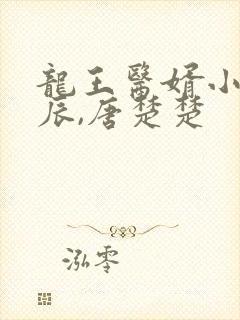 龍王醫婿小
辰,唐楚楚
泓零